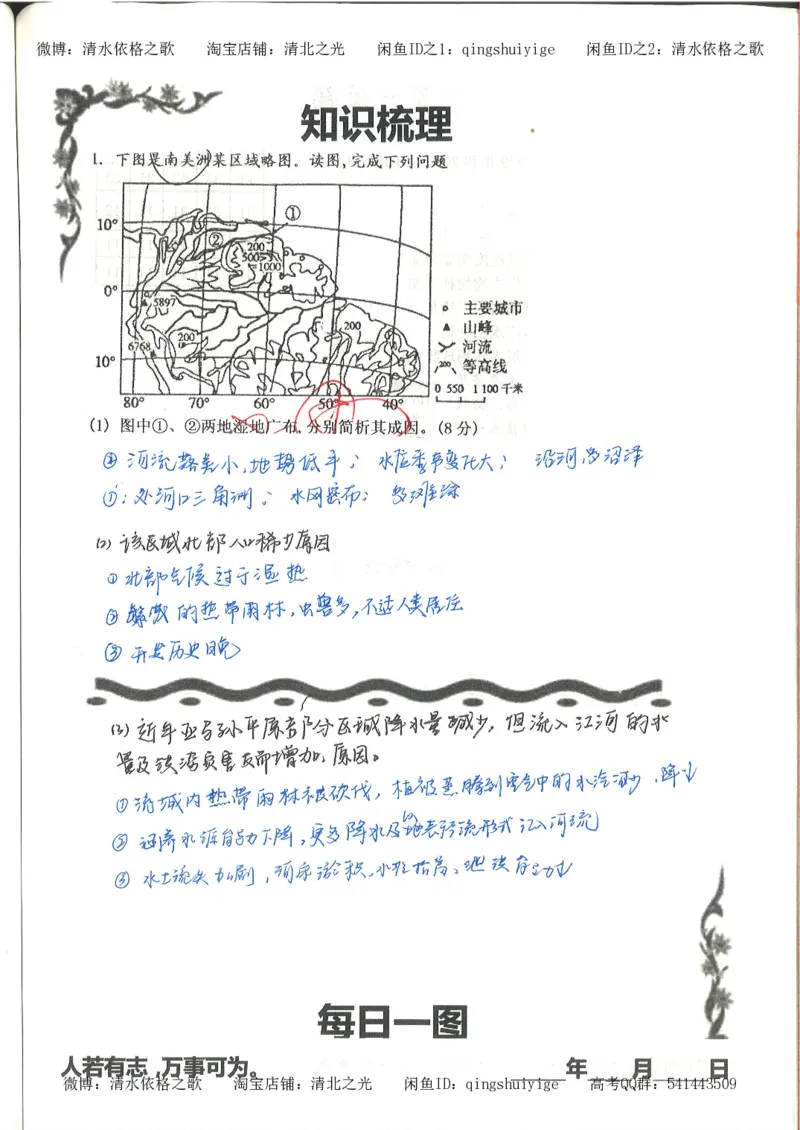 微博：清水依格之歌 淘宝店铺：清北之光 闲鱼ID之1：qingshuiyige 闲鱼ID之2：清水依格之歌
知识梳理
1. 下图是南美洲某区域略图。读图,完成下列问题
①
10°
②
200
500
1000
0°
5897
主要城市
山峰
200
河流
6768
200
等高线
10°
200
0 550 1 100 千米
80° 70° 60° 50° 40°
(1) 图中①、②两地湿地广布,分别简析其成因。(8 分)
② 河流落差小,地势低平； 水位季节变化大； 沿河多沼泽
①：处河口三角洲； 水网密布； 多滩涂
(2) 该区域北部人口稀少原因
① 北部气候过于湿热
② 繁茂的热带雨林,虫兽多,不适人类居住
③ 开发历史晚
(3) 近年亚马孙平原部分区域降水量减少，但流入江河的水
量及洪涝灾害反而增加,原因。
① 流域内热带雨林被砍伐，植被蒸腾到空气中的水汽减少,降水
② 涵养水源能力下降,更多降水以地表径流形式汇入河流
③ 水土流失加剧,河床淤积,水位抬高、泄洪能力
每日一图
人若有志,万事可为。 年 月 日
微博：清水依格之歌 淘宝店铺：清北之光 闲鱼ID：qingshuiyige 高考QQ群：541443509